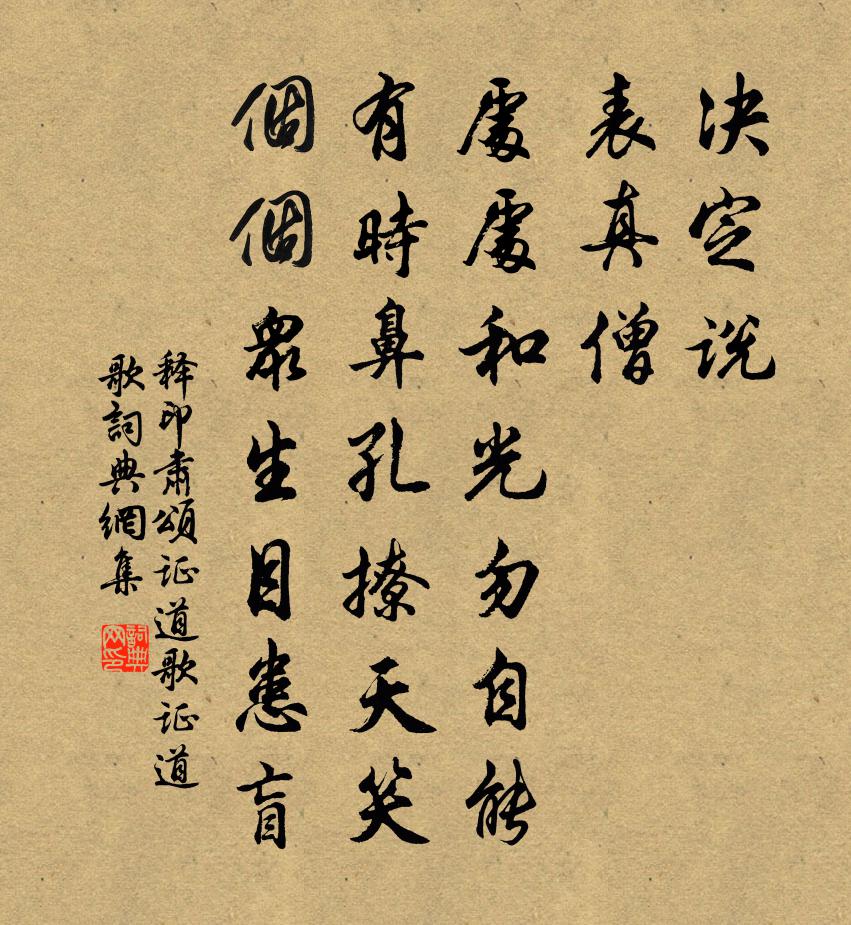 決定説
表真僧
處處和光勿自能
有時鼻孔撩天笑
個個衆生目患盲
释印肅頌证道歌证道
歌詞典網集
詞典网印